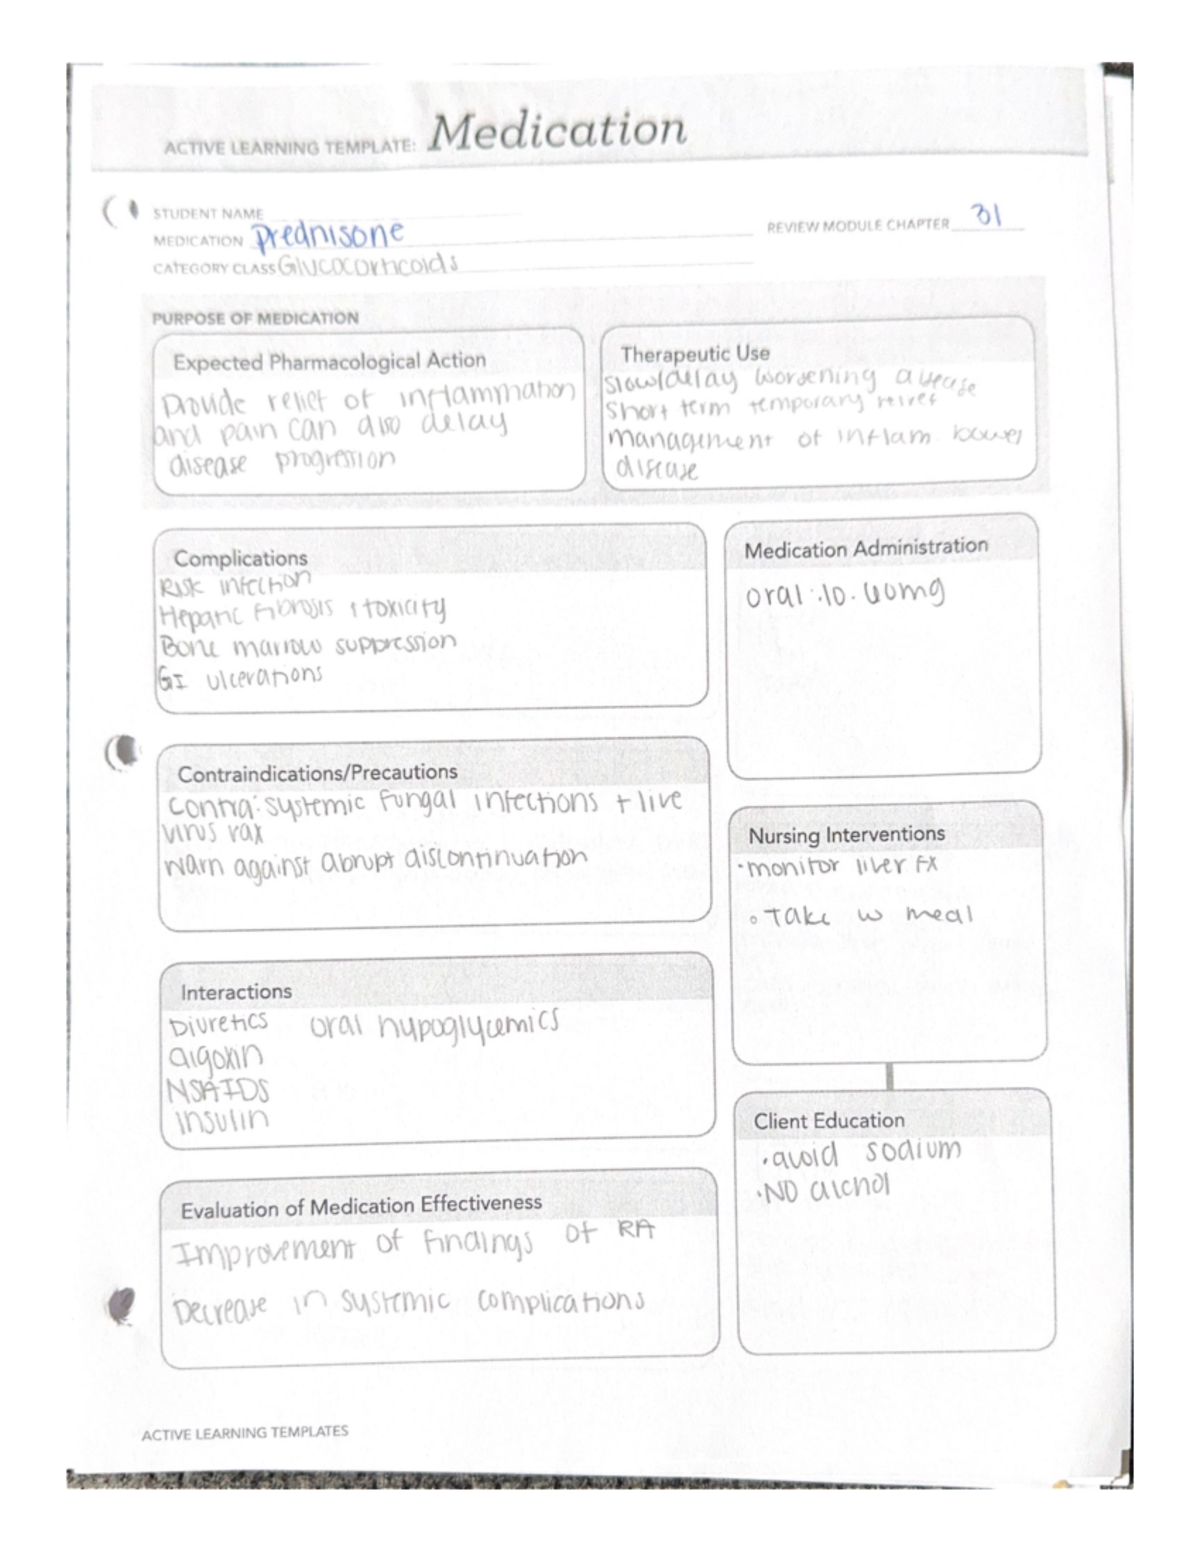 ACTIVE LEARNING TEMPLATE: Medication
STUDENT NAME
MEDICATION Prednisone
REVIEW MODULE CHAPTER 31
CATEGORY CLASS Glucocorticoids
PURPOSE OF MEDICATION
Expected Pharmacological Action
Provide relief of inflammation
and pain can also delay
disease progression
Therapeutic Use
Slow/delay worsening disease
Short term temporary relief
management of inflam. bowel
disease
Complications
Risk infection
Hepatic fibrosis + toxicity
Bone marrow suppression
GI ulcerations
Medication Administration
oral: 10. 60mg
Contraindications/Precautions
Contra: systemic fungal infections + live
virus vax
warn against abrupt discontinuation
Nursing Interventions
• monitor liver fx
• Take w meal
Interactions
Diuretics oral hypoglycemics
digoxin
NSAIDS
insulin
Client Education
• avoid sodium
• NO alchol
Evaluation of Medication Effectiveness
Improvement of findings of RA
Decrease in systemic complications
ACTIVE LEARNING TEMPLATES